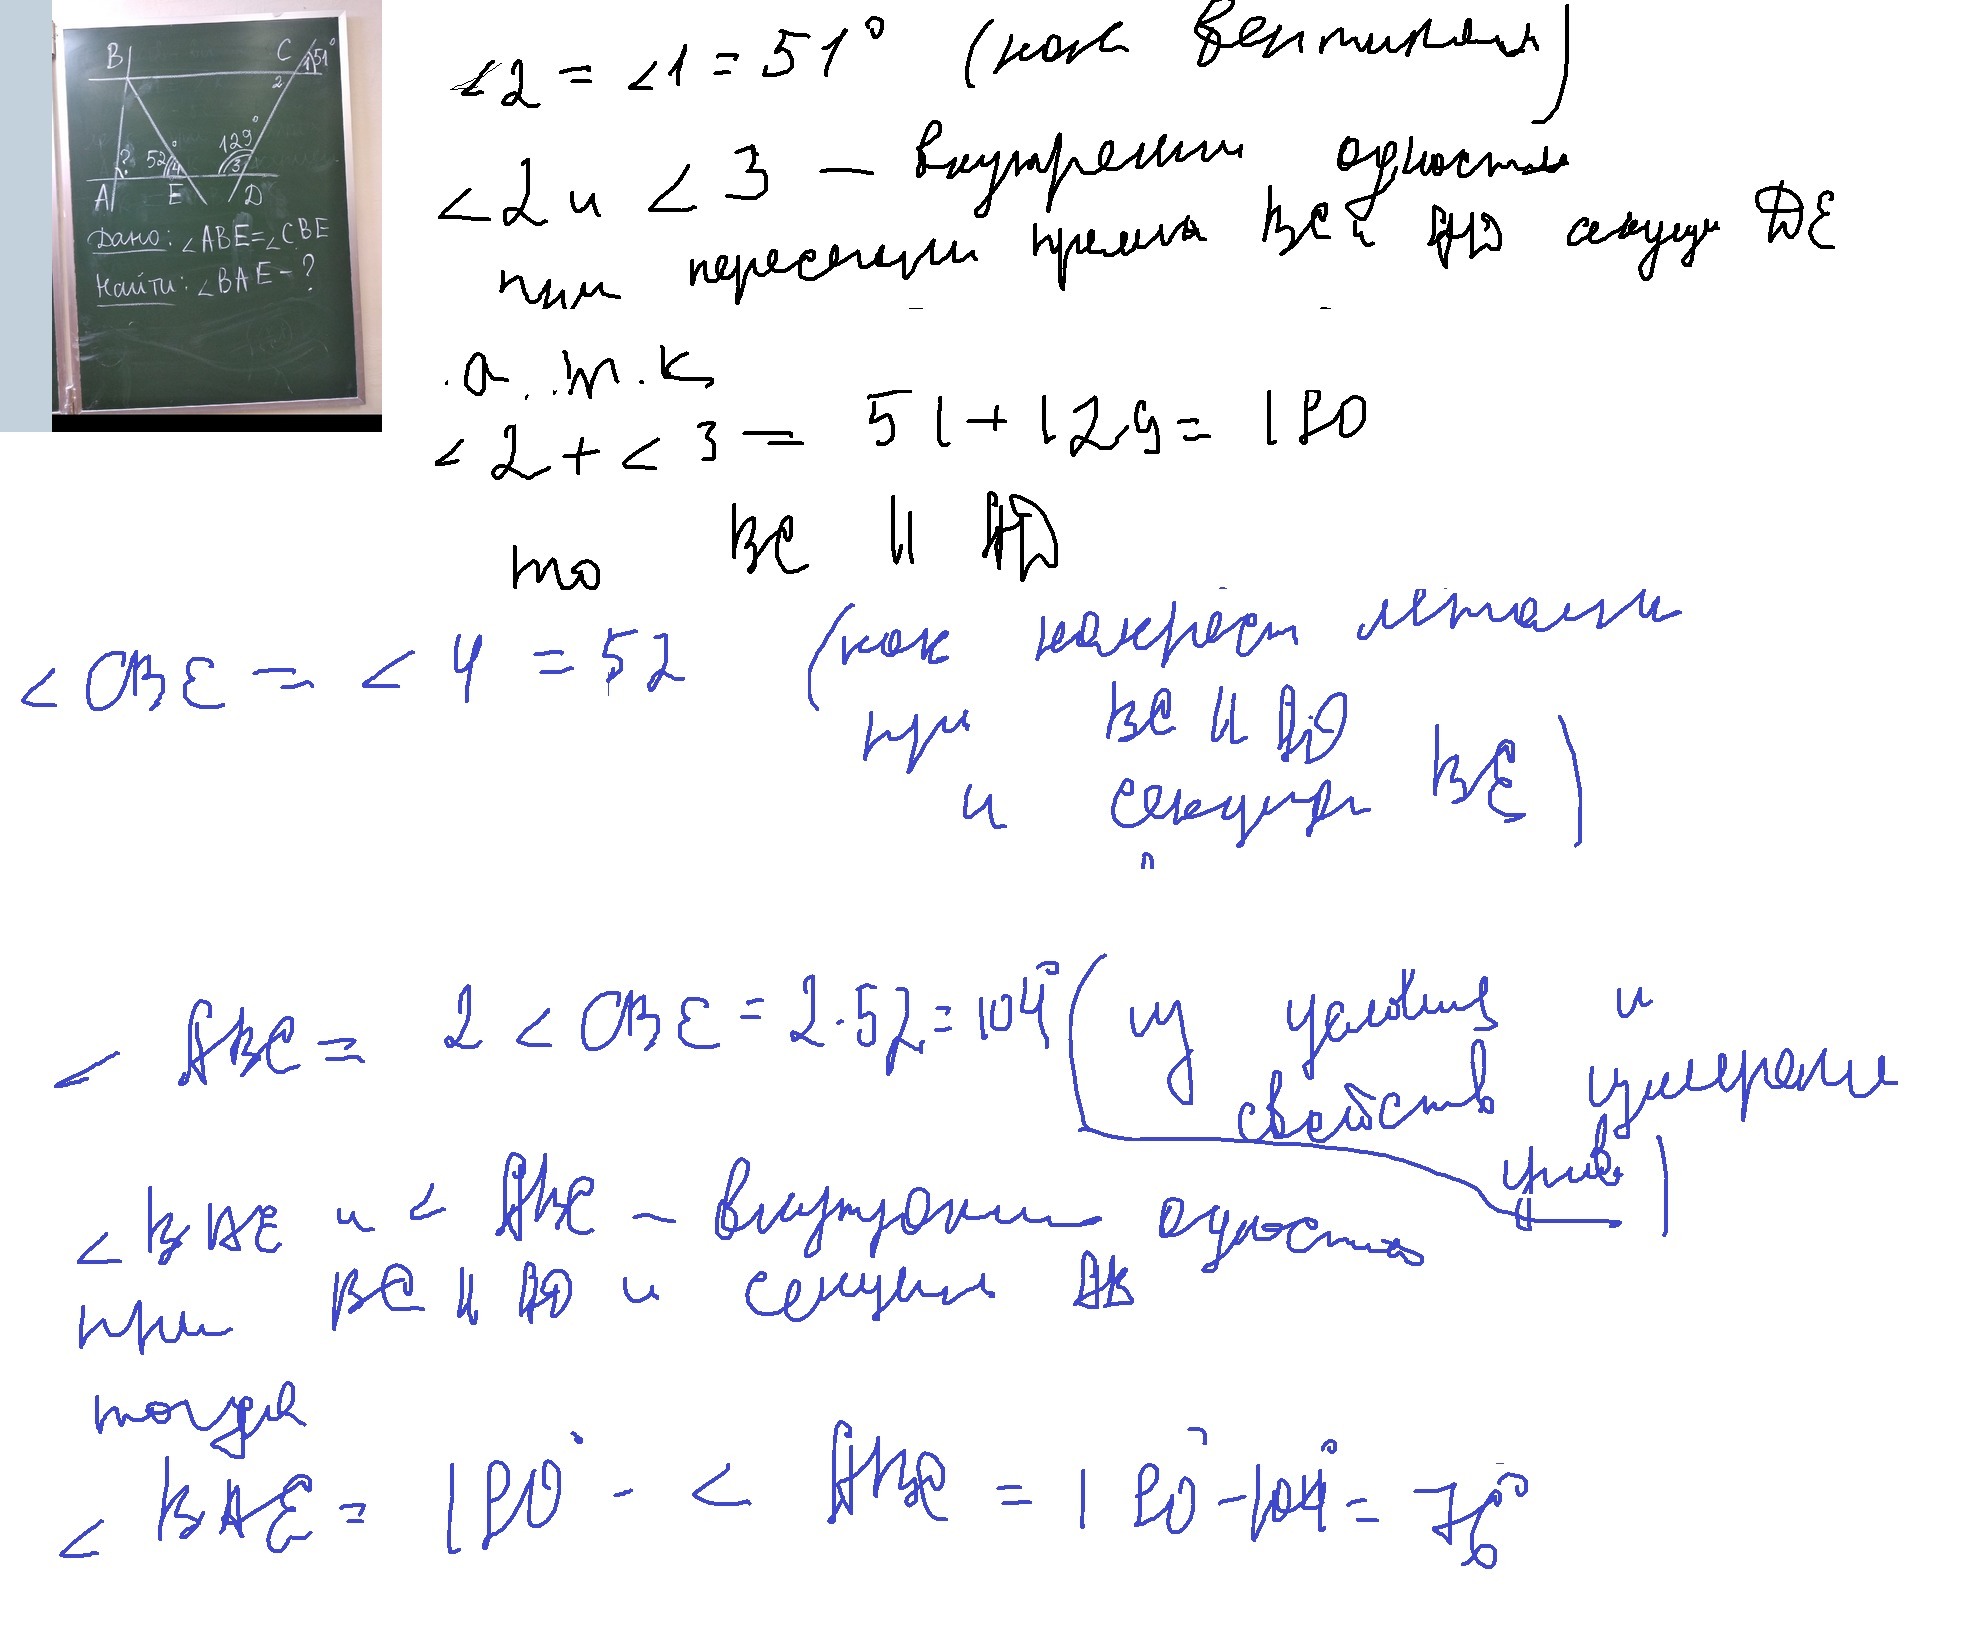 B C 51°
1
2
129°
? 52° 4 3
A E D
Дано: ∠ABE=∠CBE
Найти: ∠BAE - ?
∠2 = ∠1 = 51° (как вертикальн)
∠2 и ∠3 – внутренни одностн
при пересечении прямых BC и AD секущи DE
а т.к
∠2 + ∠3 = 51+129= 180
то BC || AD
∠CBE = ∠4 = 52 (как накрест лежащи
при BC || AD
и секущей BE)
∠ABC = 2∠CBE = 2·52 = 104° (из условия и
свойств измерени
углов)
∠BAE и ∠ABC – внутренни одностн
при BC || AD и секущей AB
тогда
∠BAE = 180° - ∠ABC = 180° - 104° = 76°